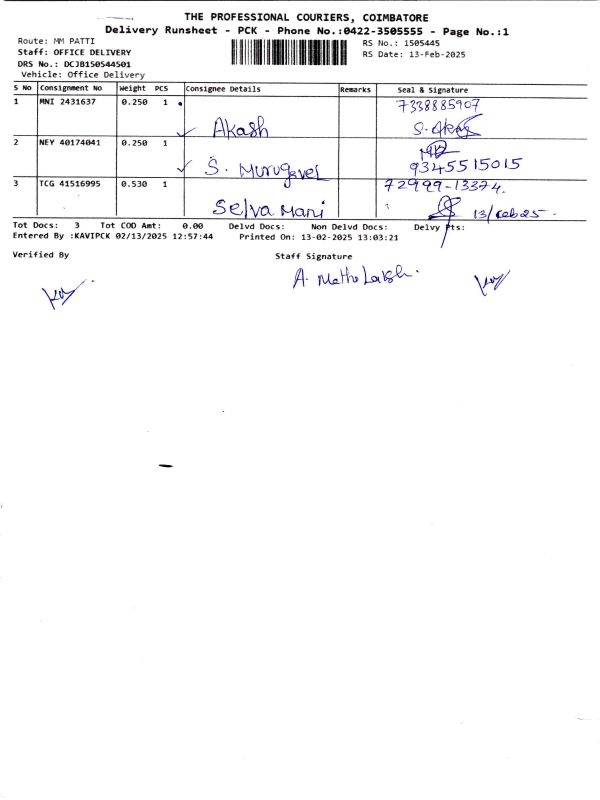 THE PROFESSIONAL COURIERS, COIMBATORE
Delivery Runsheet - PCK - Phone No.:0422-3505555 - Page No.:1
Route: MM PATTI
RS No.: 1505445
Staff: OFFICE DELIVERY
RS Date: 13-Feb-2025
DRS No.: DCJB150544501
Vehicle: Office Delivery
S No Consignment No Weight PCS Consignee Details Remarks Seal & Signature
1 MNI 2431637 0.250 1 7338885907
Akash
2 NEY 40174041 0.250 1
S. Murugavel 9345515015
3 TCG 41516995 0.530 1 72999-13374.
Selva Mani 13/Feb 25.
Tot Docs: 3 Tot COD Amt: 0.00 Delvd Docs: Non Delvd Docs: Delvy Pts:
Entered By :KAVIPCK 02/13/2025 12:57:44 Printed On: 13-02-2025 13:03:21
Verified By Staff Signature